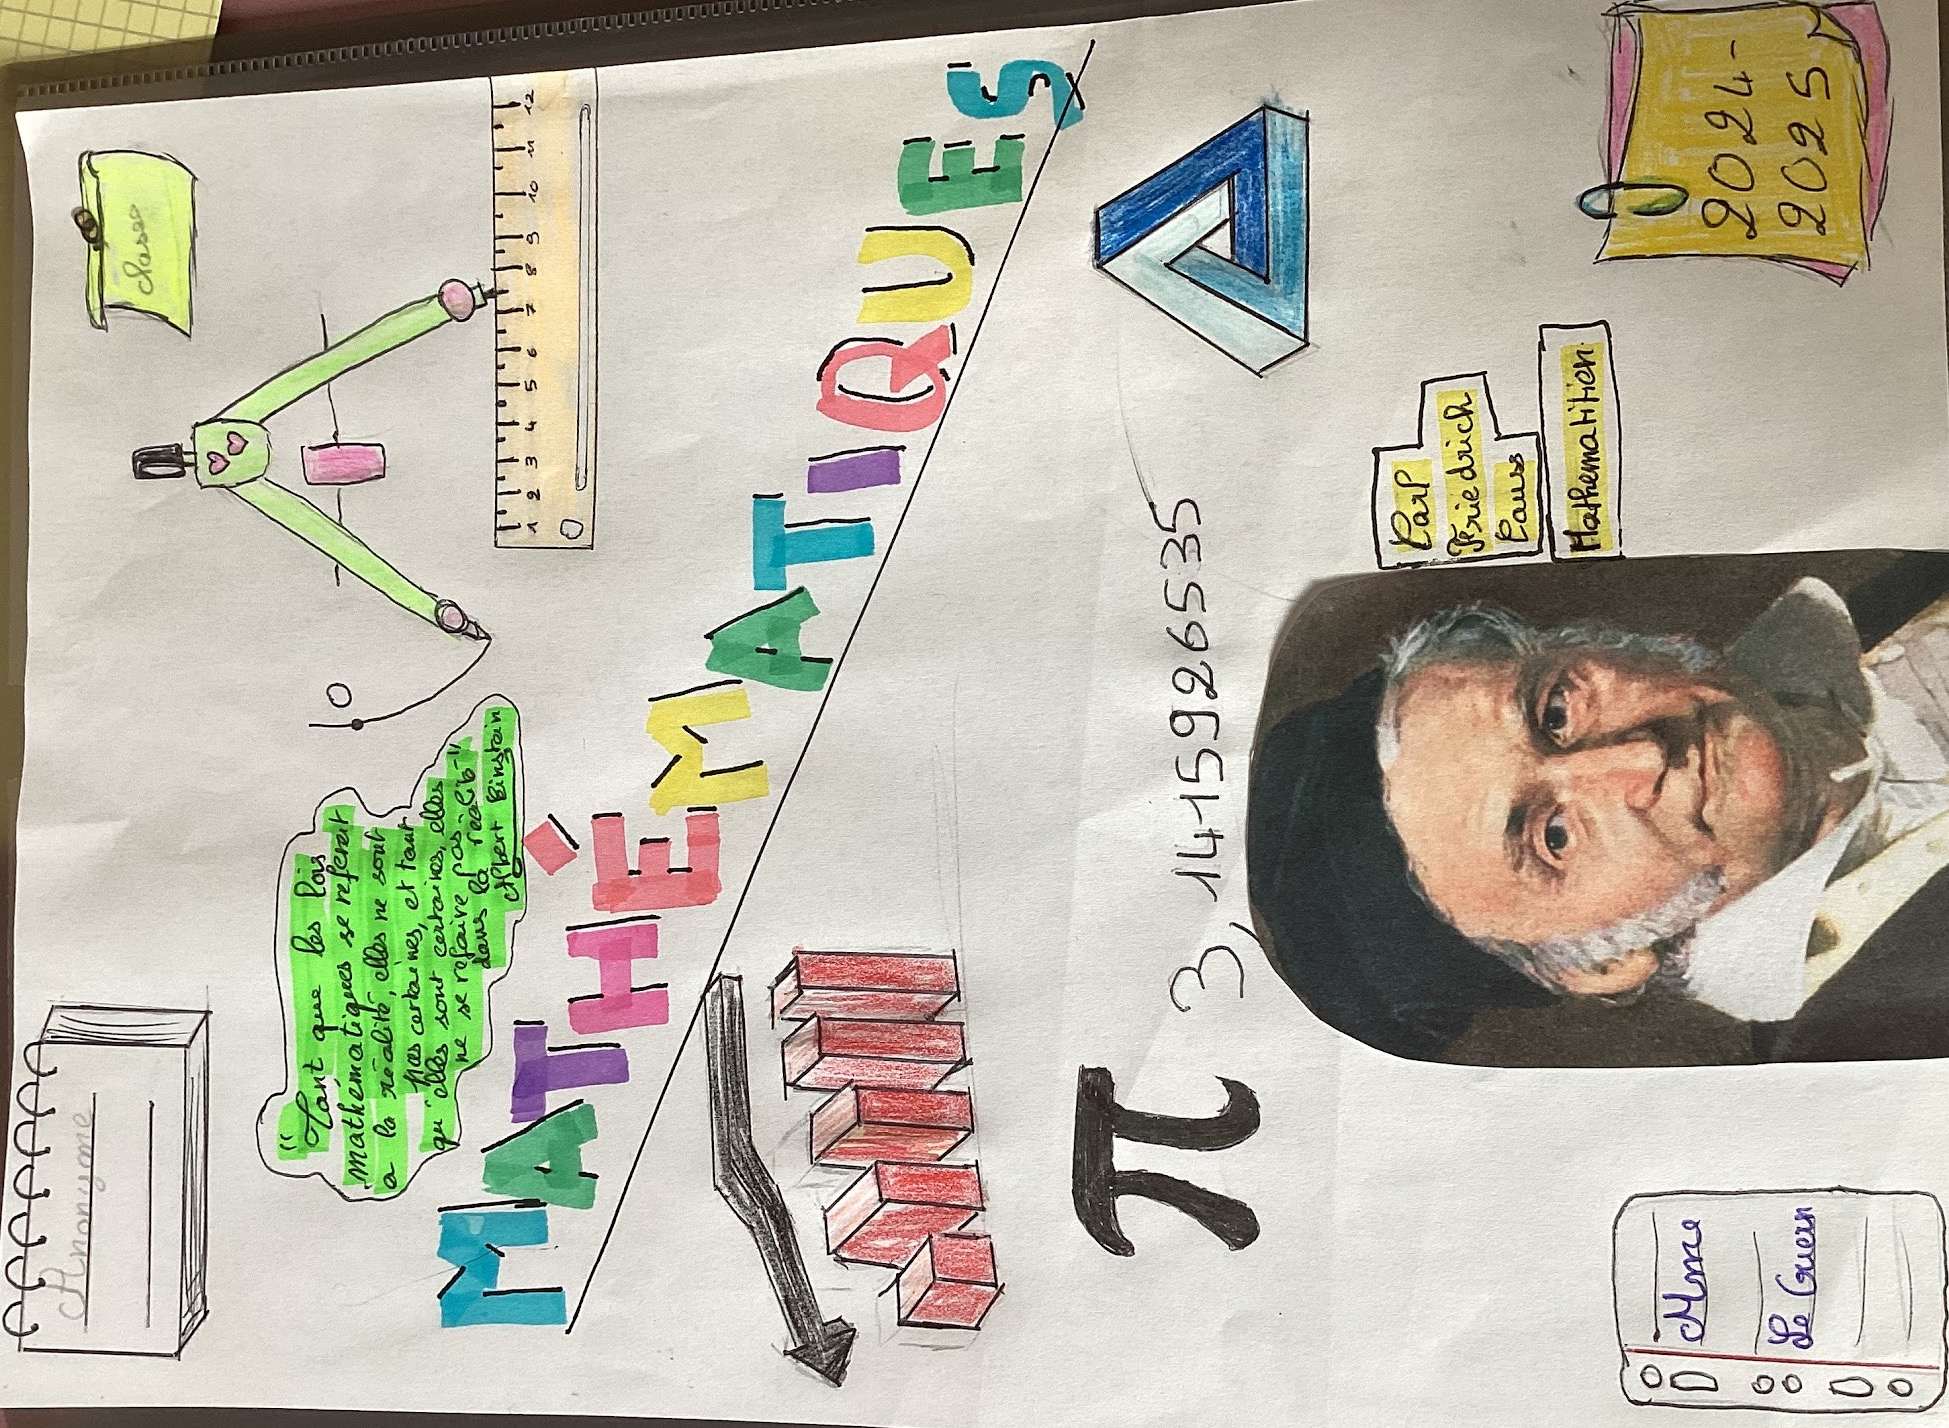 Anonyme
classe
"Tant que les lois
mathématiques se referent
a la réalité, elles ne sont
pas certaines, et tant
qu'elles sont certaines, elles
ne se refaire pas
dans la réalité"
Albert Einstein
O
1 2 3 4 5 6 7 8 9 10 11 12
MATHÉMATIQUES
π 3,14159265 35
Carl
Friedrich
Gauss
Mathematitien
Mme
Le Guern
2024-
2025